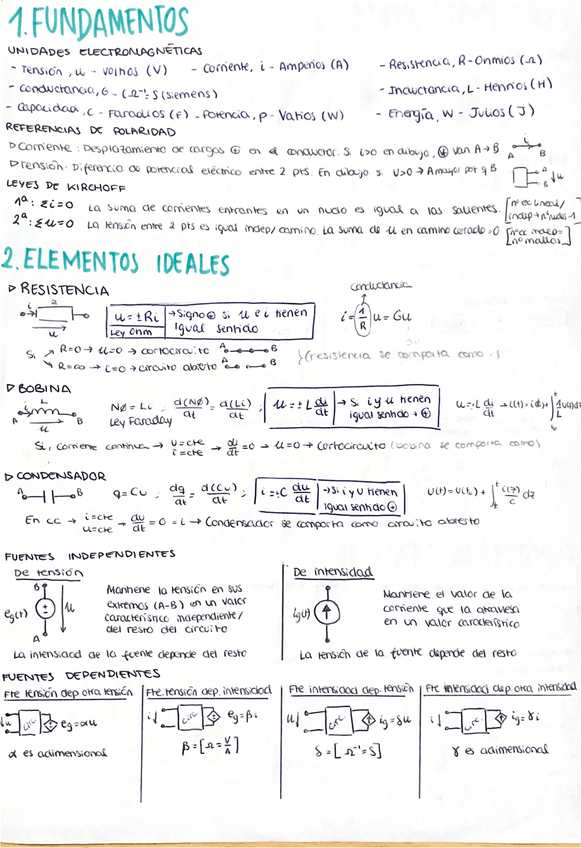 1. FUNDAMENTOS
UNIDADES ELECTROMAGNÉTICAS
- Tensión, u - voltios (V) - Corriente, i - Amperios (A) - Resistencia, R - Ohmios (Ω)
- Conductancia, G - (Ω⁻¹=S (siemens) - Inductancia, L - Henrios (H)
- Capacidad, C - Faradios (F) - Potencia, p - Vatios (W) - Energía, W - Julios (J)
REFERENCIAS DE POLARIDAD
▷ Corriente: Desplazamiento de cargas ⊕ en el conductor. Si i>0 en dibujo, ⊕ van A→B
i
A B
▷ Tensión: Diferencia de potencial eléctrico entre 2 pts. En dibujo si U>0 → A mayor por q B
A
B
u
LEYES DE KIRCHOFF
1ª: Σi=0 La suma de corrientes entrantes en un nudo es igual a las salientes.
2ª: Σu=0 La tensión entre 2 pts es igual indep/camino. La suma de u en camino cerrado =0
2. ELEMENTOS IDEALES
▷ RESISTENCIA
i R
A B
u
u = ± Ri → Signo ⊕ si u e i tienen
Ley Ohm igual sentido
conductancia
i = 1/R u = Gu
Si R=0 → u=0 → cortocircuito A B
R=∞ → i=0 → circuito abierto A B
(resistencia se comporta como)
▷ BOBINA
i L
A B
u
NØ = Li ; d(NØ)/dt = d(Li)/dt ;
Ley Faraday
u = ± L di/dt → Si i y u tienen
igual sentido → ⊕
u = L di/dt
Si, corriente continua → U=cte
i=cte → di/dt = 0 → u=0 → Cortocircuito (bobina se comporta como)
▷ CONDENSADOR
A B
q = Cu ; dq/dt = d(Cu)/dt ;
i = ± C du/dt → Si i y U tienen
igual sentido ⊕
En cc → i=cte
u=cte → du/dt = 0 = i → Condensador se comporta como circuito abierto
FUENTES INDEPENDIENTES
De tensión
B
eg(t) u
A
Mantiene la tensión en sus
extremos (A-B) en un valor
característico independiente/
del resto del circuito
La intensidad de la fuente depende del resto
De intensidad
ig(t)
Mantiene el valor de la
corriente que la atraviesa
en un valor característico
La tensión de la fuente depende del resto
FUENTES DEPENDIENTES
Fte tensión dep otra tensión
u Circ eg=αu
α es adimensional
Fte. tensión dep. intensidad
i Circ eg=βi
β=[Ω=V/A]
Fte intensidad dep. tensión
u Circ ig=δu
δ=[Ω⁻¹=S]
Fte intensidad dep otra intensidad
i Circ ig=γi
γ es adimensional